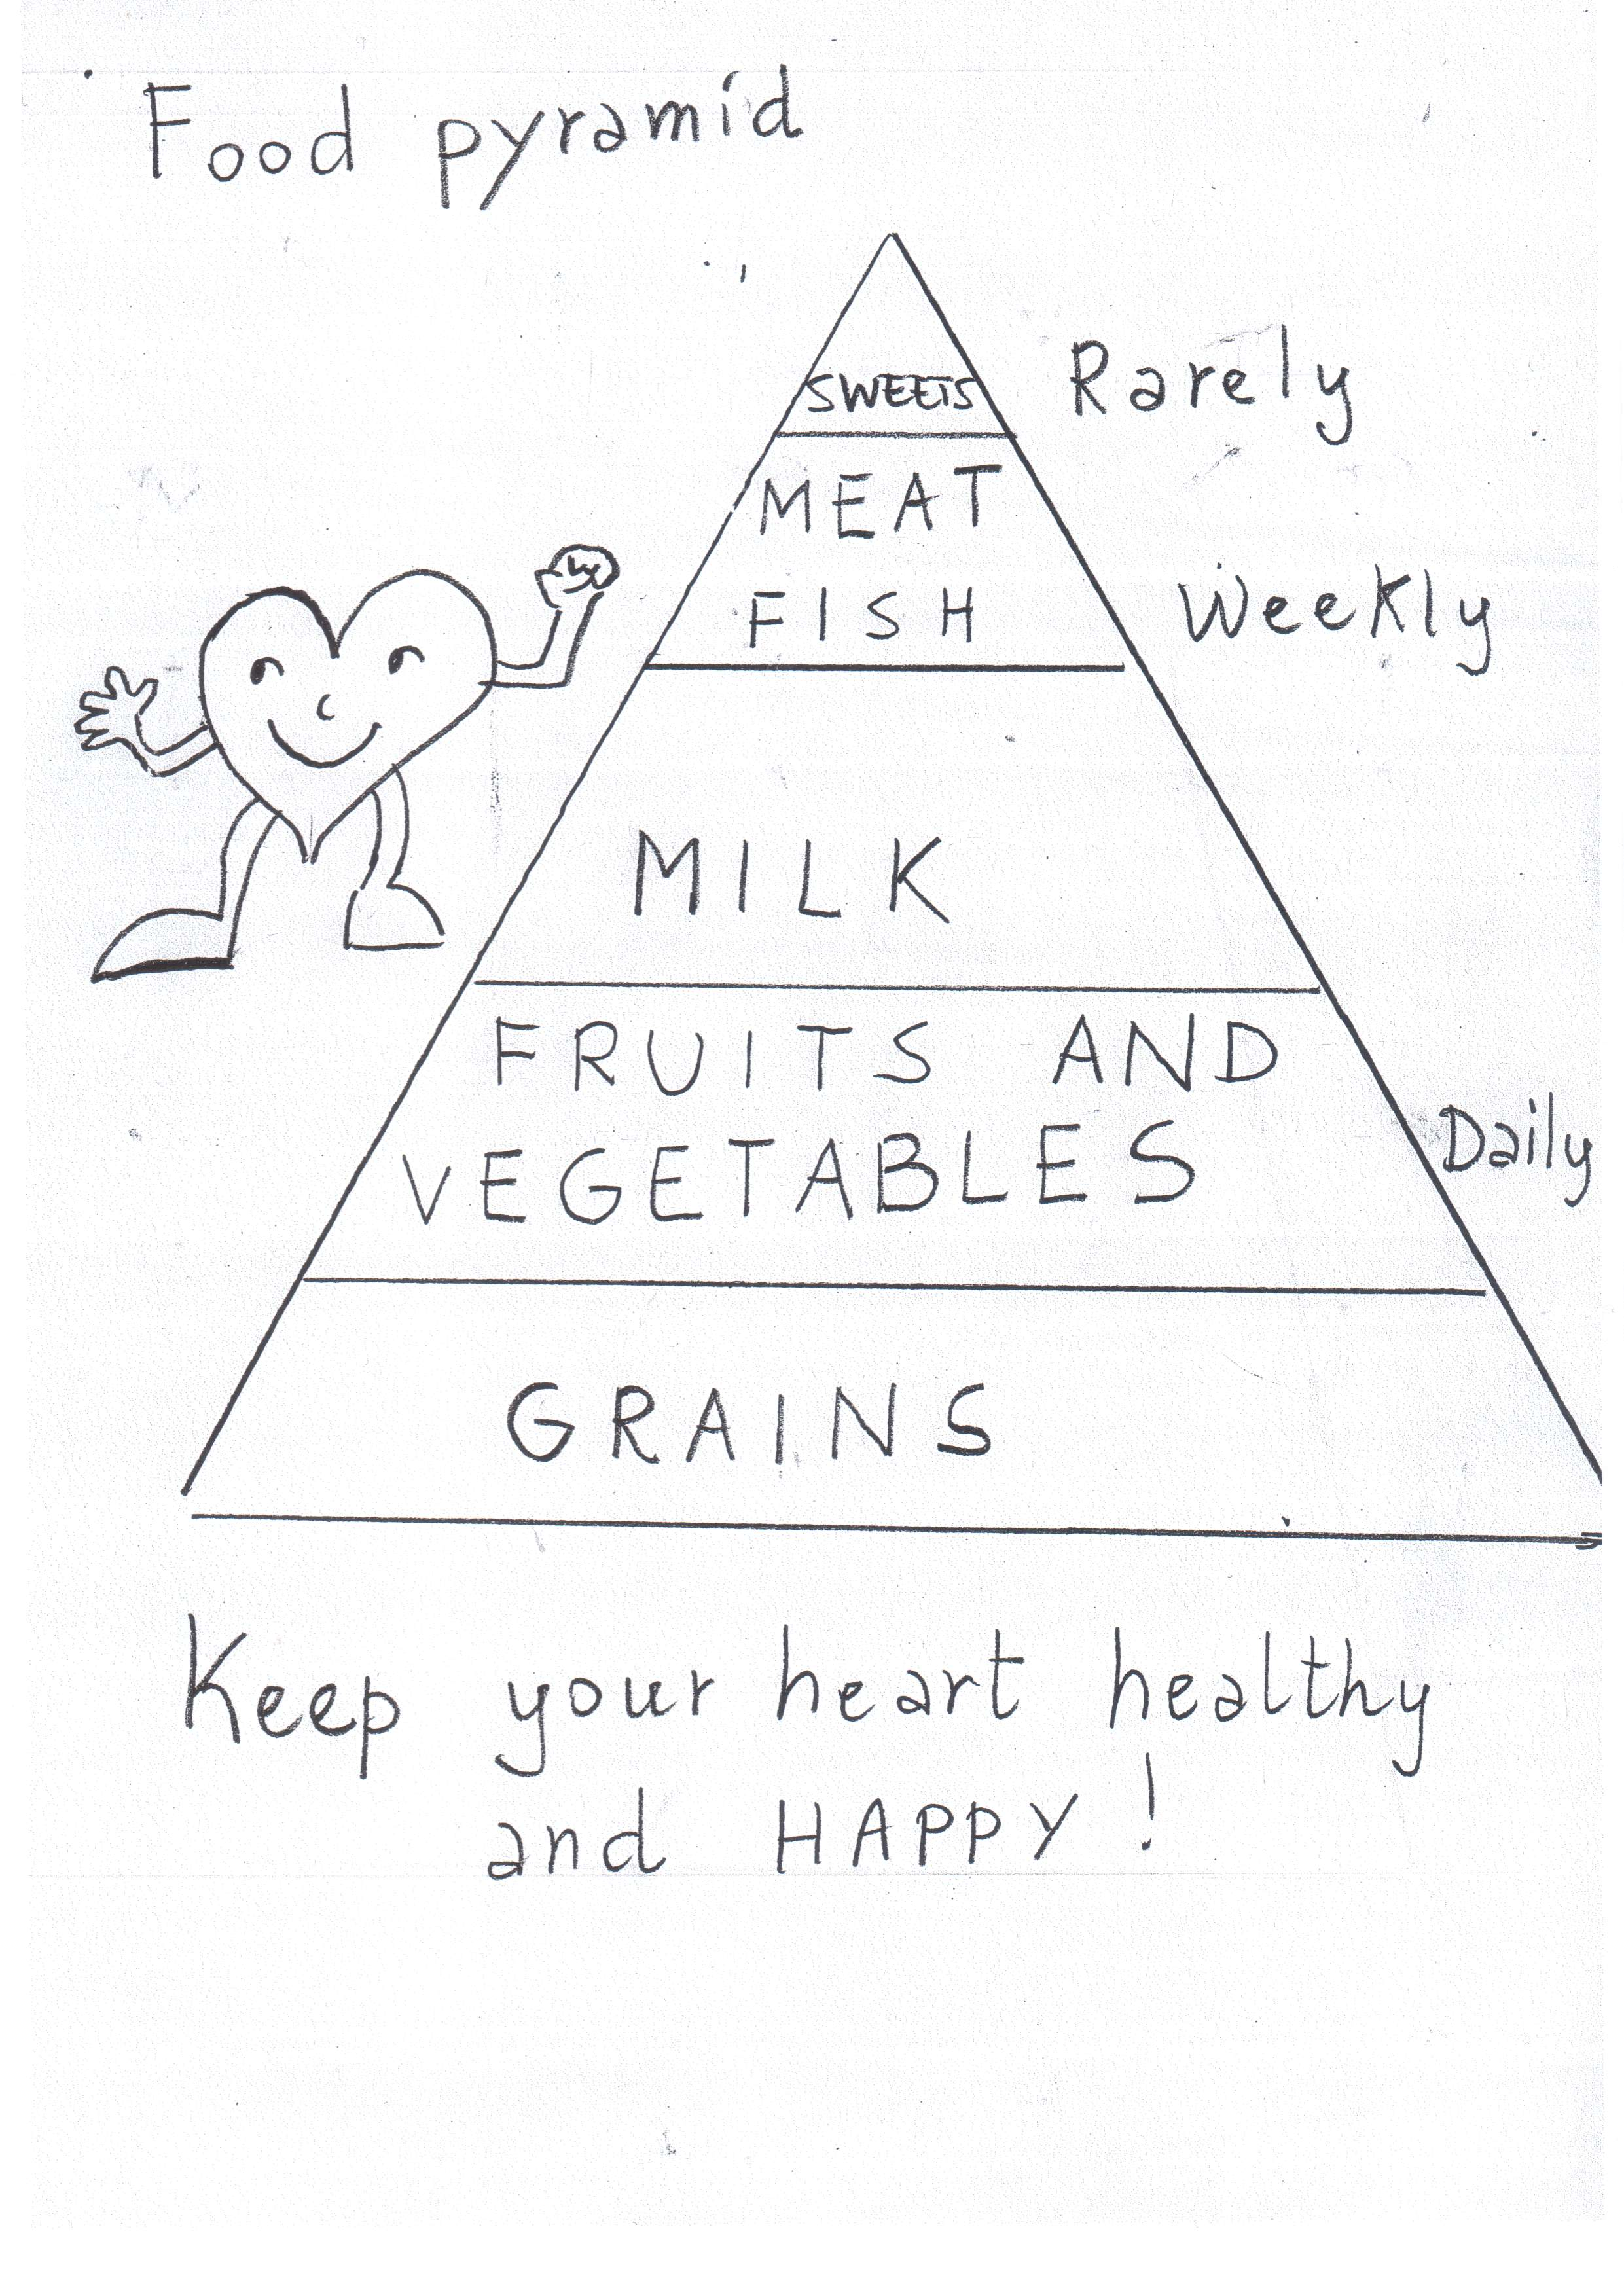 Food pyramid
SWEETS
Rarely
MEAT
FISH
Weekly
MILK
FRUITS AND
VEGETABLES
Daily
GRAINS
Keep your heart healthy
and HAPPY!